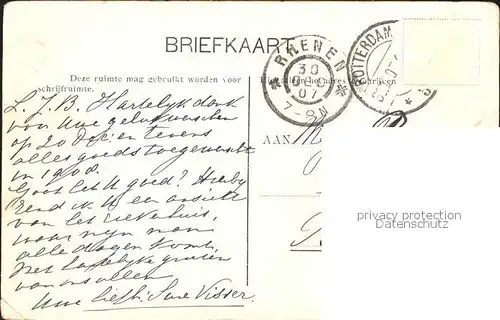 BRIEFKAART
RHENEN
30
DEC
07
7-8N
ROTTERDAM
Deze ruimte mag gebruikt worden voor
schrijfruimte.
AAN
L. J. B. Hartelijk dank
voor Uwe gelukwenschen
op 20 Dec. en tevens
alles goeds toegewenscht
in 1908.
Gaat het U goed? Hierby
zend ik U een aansicht
van het ziekenhuis,
waar myn man
alle dagen komt.
Met hartelyke groeten
van ons allen
Uwe liefh. Visser
privacy protection
Datenschutz